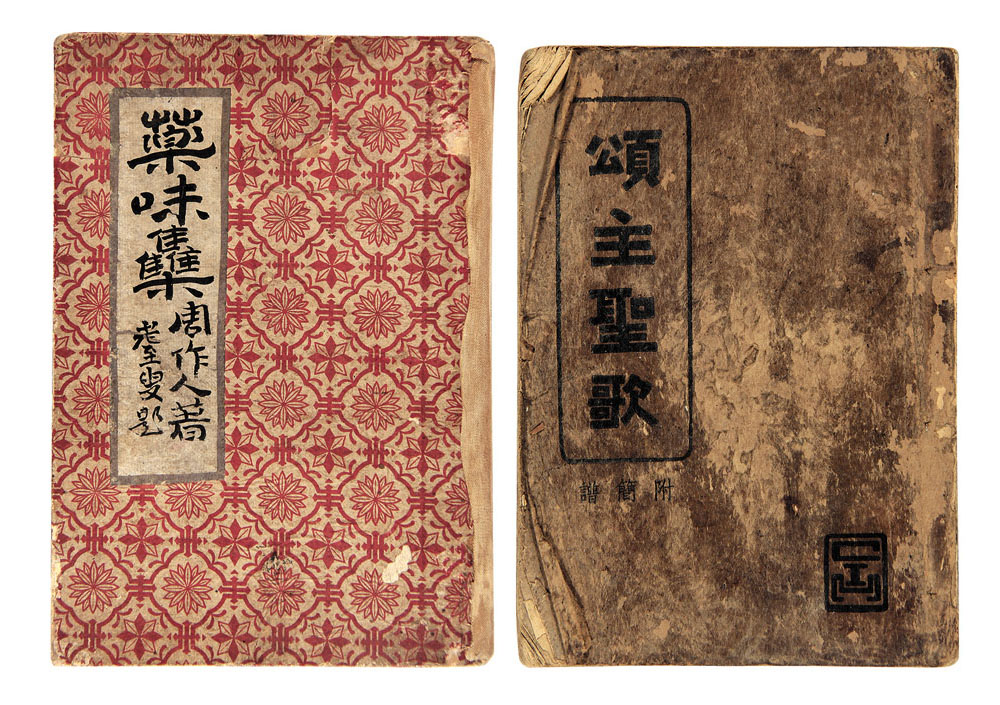 藥味雧
周作人著
耋叟題
頌主聖歌
附簡譜